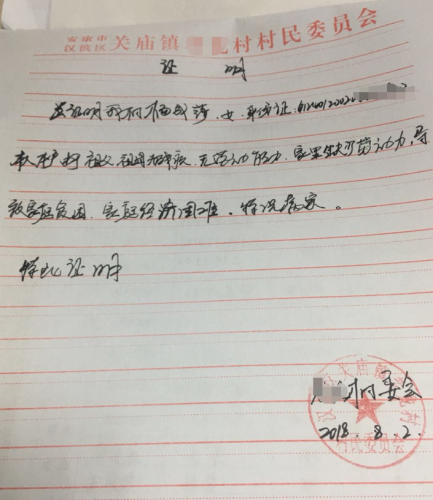 安康市
汉滨区 关庙镇 村村民委员会
证 明
兹证明我村 女 身份证 612401200
祖父 祖母 无劳动能力 家里缺少劳动力,导
致家庭贫困 家庭经济困难。情况属实。
特此证明
村委会
2018.8.2.
关庙镇 村
村民委员会